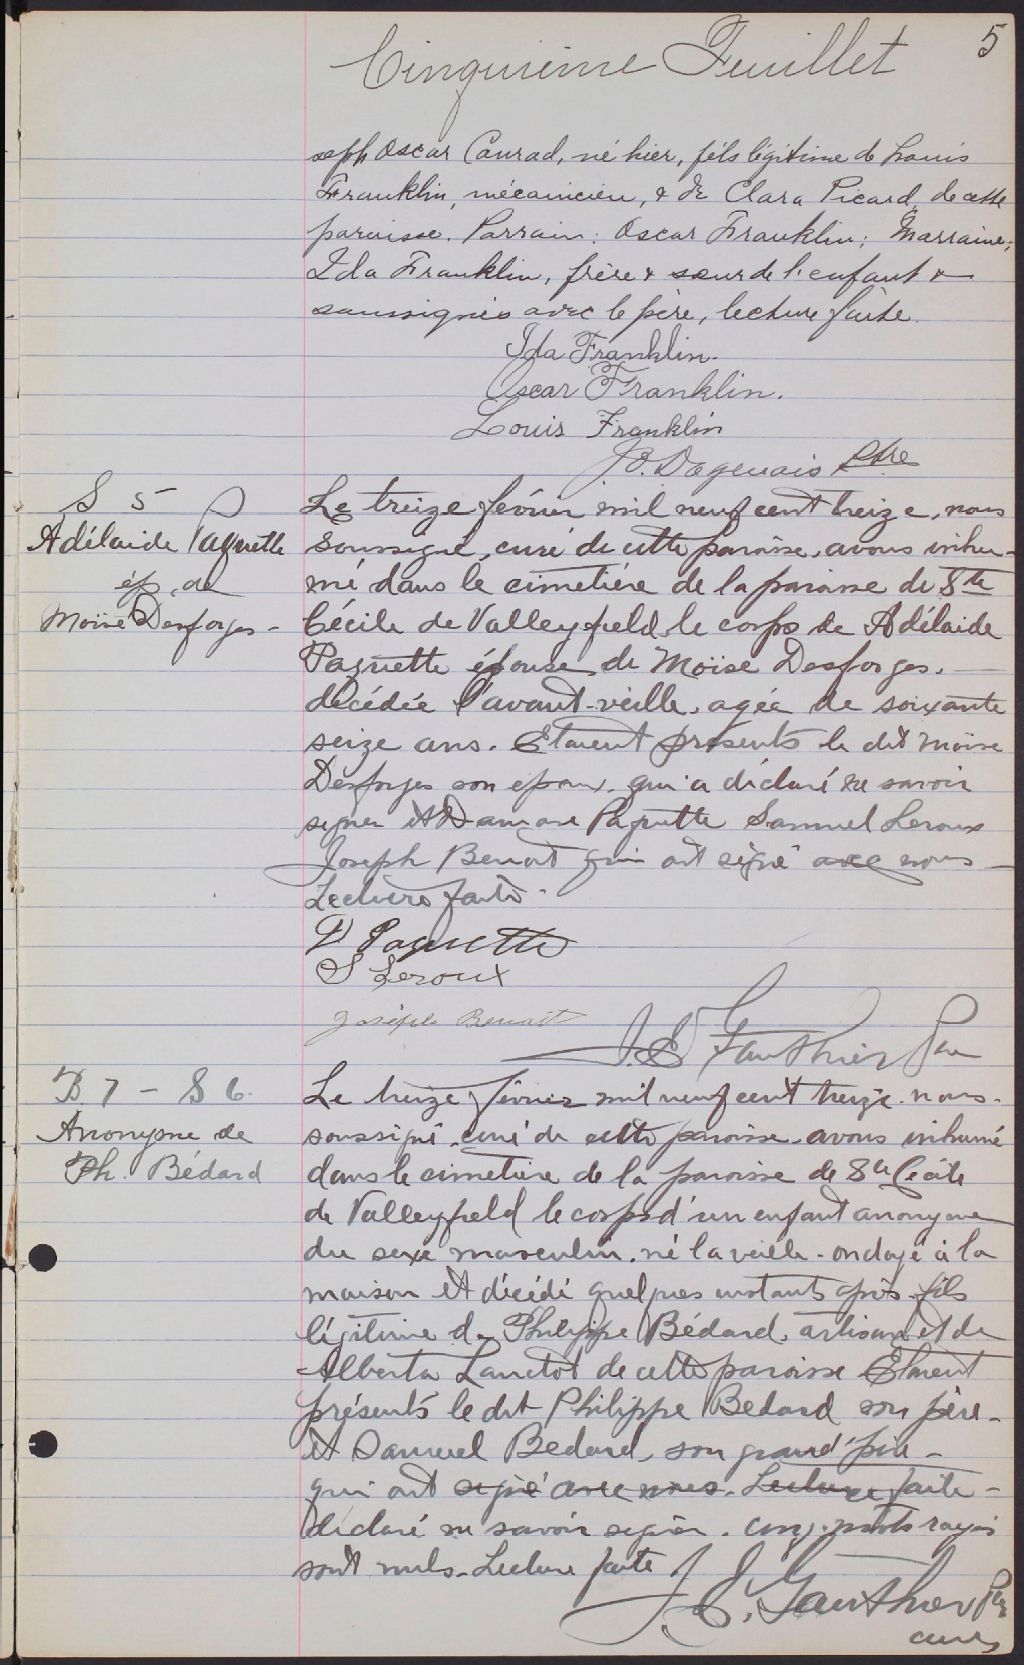 5
Cinquième Feuillet
seph Oscar Conrad, né hier, fils légitime de Louis
Franklin, mécanicien, & de Clara Picard, de cette
paroisse. Parrain: Oscar Franklin; Marraine,
Ida Franklin, frère & sœur de l'enfant &
soussignés avec le père, lecture faite.
Ida Franklin.
Oscar Franklin.
Louis Franklin
J.O. Dagenais Ptre
S 5
Adélaide Paquette
ép. de
Moïse Desforges -
Le treize février mil neuf cent treize, nous
soussigné, curé de cette paroisse, avons inhu-
mé dans le cimetière de la paroisse de Ste
Cécile de Valleyfield le corps de Adélaide
Paquette épouse de Moïse Desforges.
décédée l'avant-veille, agée de soixante
seize ans. Etaient présents le dit Moïse
Desforges son epoux. qui a déclaré ne savoir
signer et Damase Paquette Samuel Leroux
Joseph Benoit qui ont signé avec nous -
Lecture faite -
D Paquette
S Leroux
Joseph Benoit
J. E Gauthier Ptre
B. 7 - S 6.
Anonyme de
Ph. Bédard
Le treize février mil neuf cent treize. nous -
soussigné, curé de cette paroisse, avons inhumé
dans le cimetière de la paroisse de Ste Cécile
de Valleyfield le corps d'un enfant anonyme
du sexe masculin. né la veille - ondoyé à la
maison et décédé quelques instants après. fils
légitime de Philippe Bédard, artisan et de
Alberta Lanctot de cette paroisse Etaient
présents le dit Philippe Bedard son père -
et Samuel Bedard, son grand'père -
qui ont signé avec nous. Lecture faite -
déclaré ne savoir signer. cinq mots rayés
sont nuls. Lecture faite
J. E. Gauthier Ptre
curé